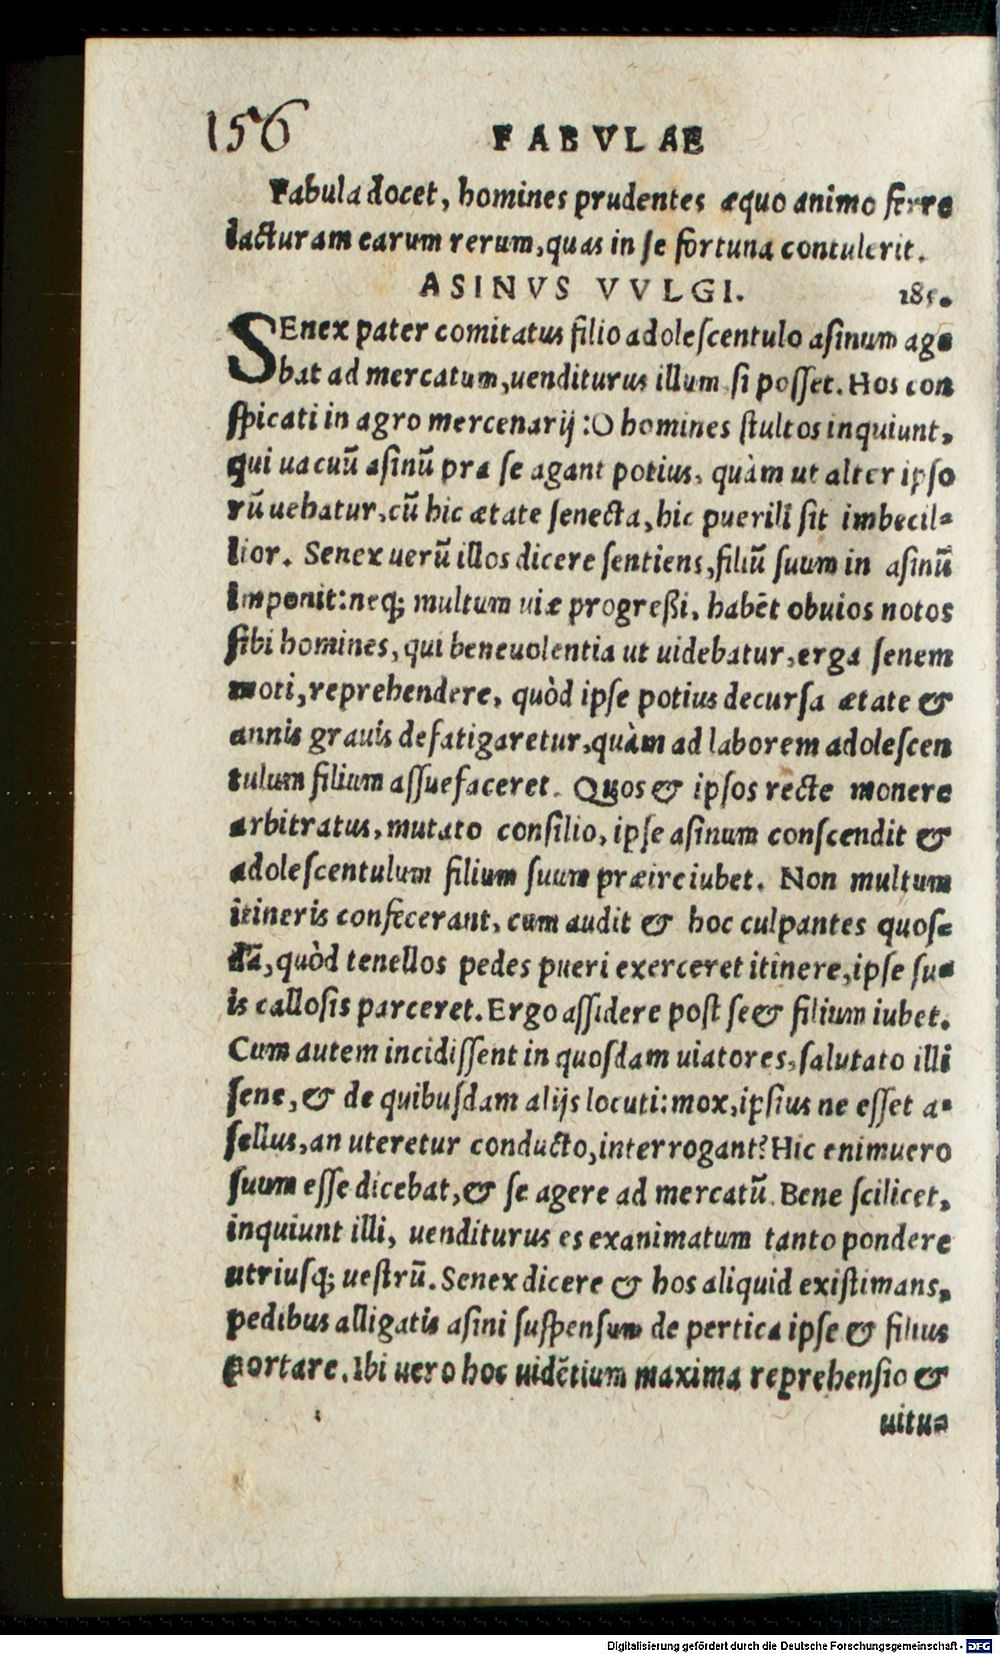 156
FABVLAE
Fabula docet, homines prudentes æquo animo ferre
iacturam earum rerum, quas in se fortuna contulerit.
ASINVS VVLGI. 185.
SEnex pater comitatus filio adolescentulo asinum age
bat ad mercatum, uenditurus illum si posset. Hos con
spicati in agro mercenarij: O homines stultos inquiunt,
qui uacuū asinū præ se agant potius, quàm ut alter ipso
rū uehatur, cū hic ætate senecta, hic puerili sit imbecil⸗
lior. Senex uerū illos dicere sentiens, filiū suum in asinū
imponit: neq; multum uiæ progreßi, habēt obuios notos
sibi homines, qui beneuolentia ut uidebatur, erga senem
moti, reprehendere, quòd ipse potius decursa ætate &
annis grauis defatigaretur, quàm ad laborem adolescen
tulum filium assuefaceret. Quos & ipsos recte monere
arbitratus, mutato consilio, ipse asinum conscendit &
adolescentulum filium suum præire iubet. Non multum
itineris confecerant, cum audit & hoc culpantes quos⸗
dā, quòd tenellos pedes pueri exerceret itinere, ipse su⸗
is callosis parceret. Ergo assidere post se & filium iubet.
Cum autem incidissent in quosdam uiatores, salutato illi
sene, & de quibusdam alijs locuti: mox, ipsius ne esset a⸗
sellus, an uteretur conducto, interrogant? Hic enimuero
suum esse dicebat, & se agere ad mercatū. Bene scilicet,
inquiunt illi, uenditurus es exanimatum tanto pondere
utriusq; uestrū. Senex dicere & hos aliquid existimans,
pedibus alligatis asini suspensum de pertica ipse & filius
portare. Ibi uero hoc uidētium maxima reprehensio &
uitu⸗
Digitalisierung gefördert durch die Deutsche Forschungsgemeinschaft - DFG